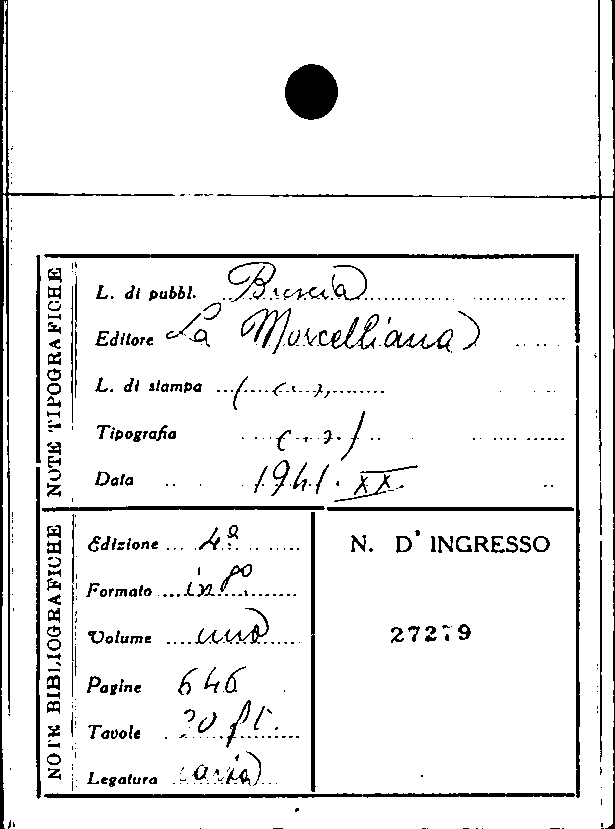 NOTE TIPOGRAFICHE
L. di pubbl. Brescia
Editore La Morcelliana
L. di stampa
Tipografia
Data 1941. XX.
NOTE BIBLIOGRAFICHE
Edizione 4ª
Formato in 8º
Volume uno
Pagine 646
Tavole 20 ft.
Legatura carta
N. D' INGRESSO
27279